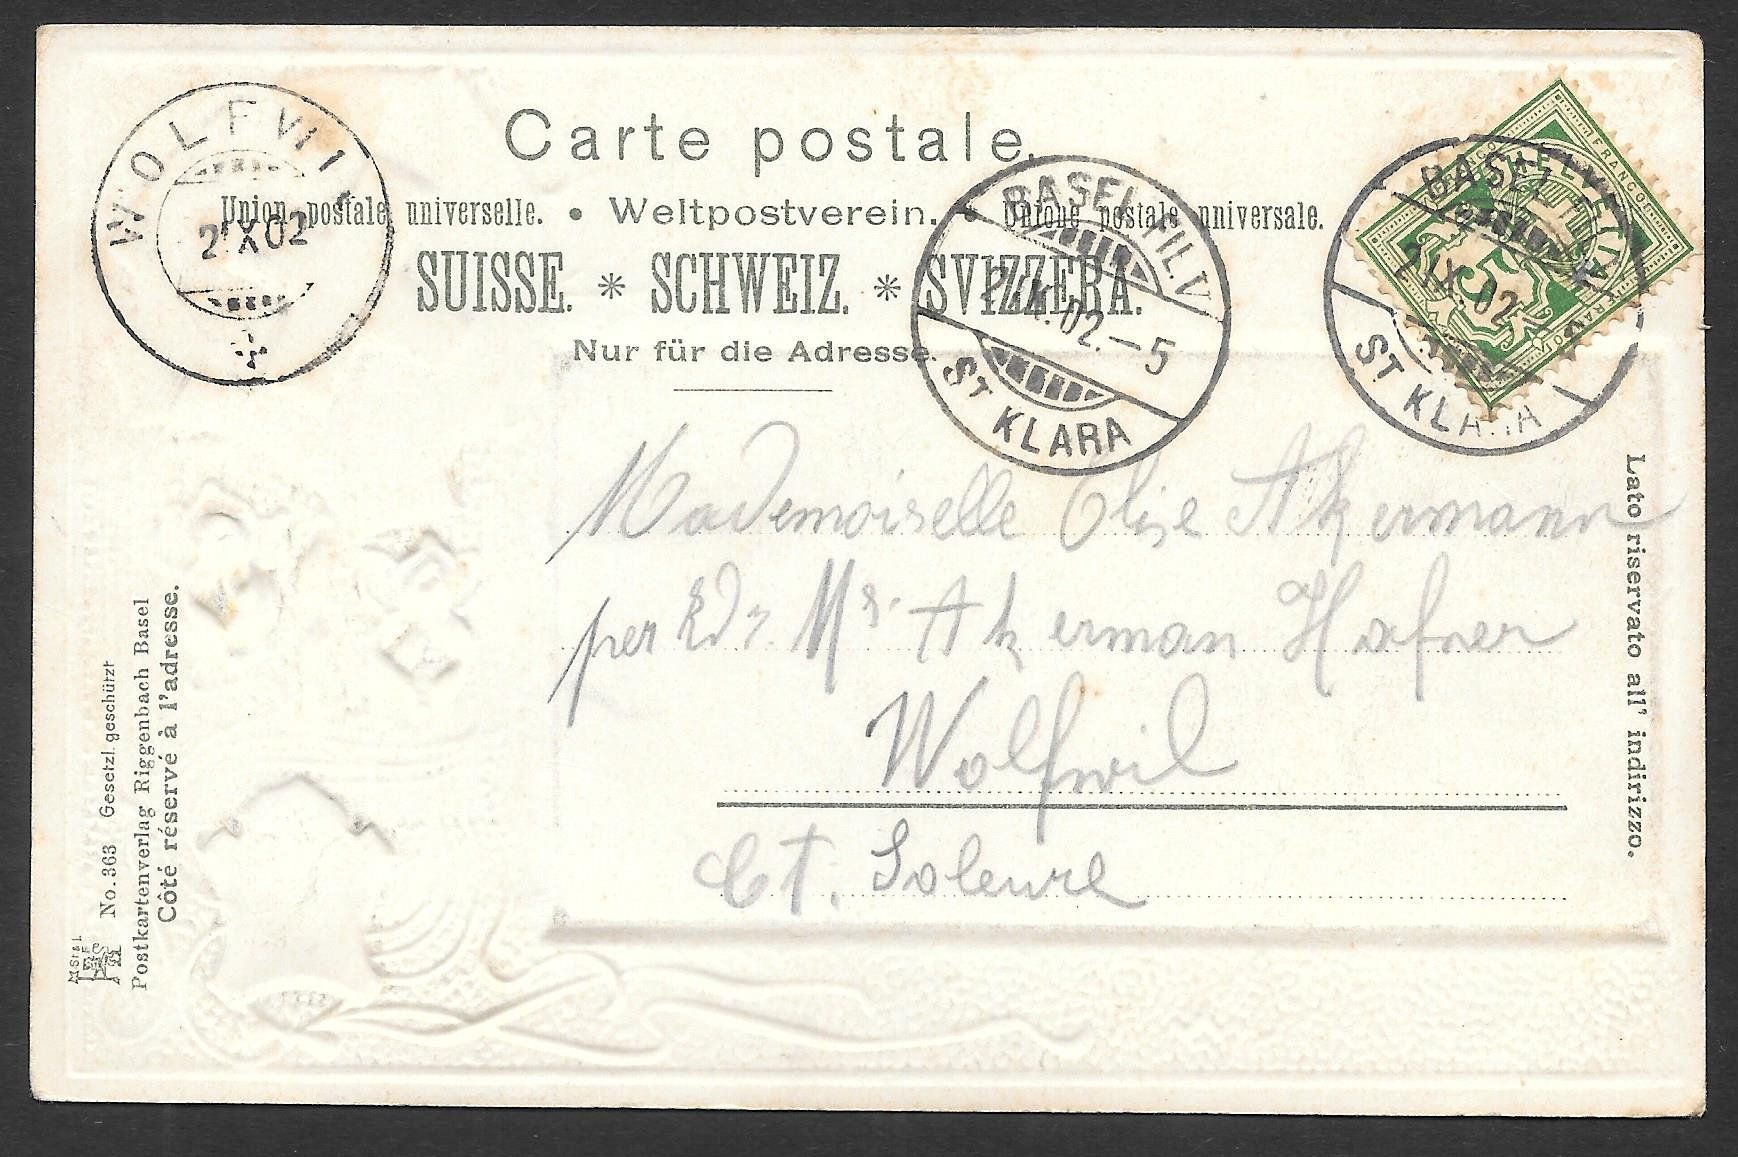 Carte postale.
Union postale universelle. • Weltpostverein. • Unione postale universale.
SUISSE. * SCHWEIZ. * SVIZZERA.
Nur für die Adresse.
WOLFWIL
2 IX 02
BASEL FIL. V
2. IX. 02. – 5
ST KLARA
BASEL
2. IX. 02.
ST KLARA
FRANCO HELVETIA FRANCO
5
Mademoiselle Elise Akermann
per Adr. Mr. Akerman Hafner
Wolfwil
Ct. Soleure
Lato riservato all' indirizzo.
No. 363 Gesetzl. geschützt
Postkartenverlag Riggenbach Basel
Côté réservé à l'adresse.